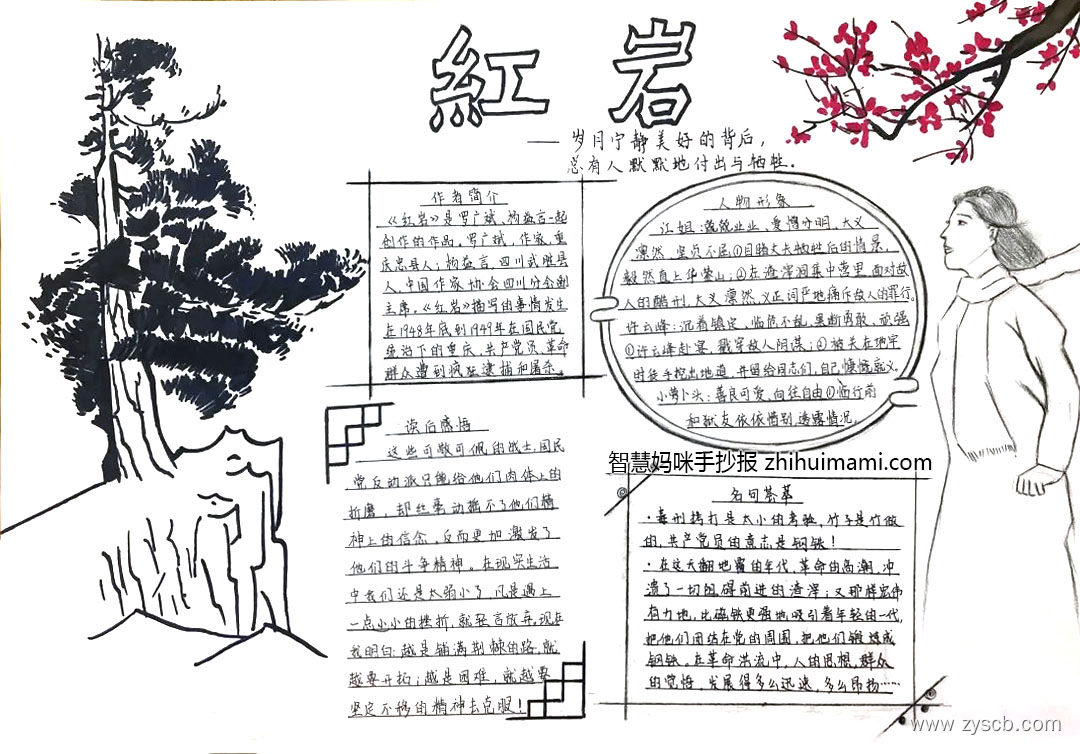 紅 岩
—— 岁月宁静美好的背后，
总有人默默地付出与牺牲.
作者简介
《红岩》是罗广斌、杨益言一起
创作的作品。罗广斌，作家，重
庆忠县人；杨益言，四川武胜县
人，中国作家协会四川分会副
主席。《红岩》描写的事情发生
在1948年底到1949年在国民党
统治下的重庆，共产党员、革命
群众遭到疯狂逮捕和屠杀。
人物形象
江姐：兢兢业业、爱憎分明、大义
凛然、坚贞不屈①目睹丈夫牺牲后的情景，
毅然直上华蓥山；②在渣滓洞集中营里，面对敌
人的酷刑，大义凛然，义正词严地痛斥敌人的罪行。
许云峰：沉着镇定、临危不乱、果断勇敢、顽强
①许云峰赴宴，戳穿敌人阴谋；②被关在地牢
时徒手挖出地道，并留给同志们，自己慷慨就义。
小萝卜头：善良可爱、向往自由①临行前
和狱友依依惜别，透露情况。
读后感悟
这些可敬可佩的战士，国民
党反动派只能给他们肉体上的
折磨，却丝毫动摇不了他们精
神上的信念。反而更加激发了
他们的斗争精神。在现实生活
中我们还是太弱小了，凡是遇上
一点小小的挫折，就轻言放弃。现在
我明白：越是铺满荆棘的路，就
越要开拓；越是困难，就越要
坚定不移的精神去克服！
智慧妈咪手抄报 zhihuimami.com
名句荟萃
·毒刑拷打是太小的考验，竹子是竹做
的，共产党员的意志是钢铁！
·在这天翻地覆的年代，革命的高潮，冲
溃了一切阻碍前进的渣滓；又那样宏伟
有力地，比磁铁更强地吸引着年轻的一代，
把他们团结在党的周围，把他们锻炼成
钢铁。在革命洪流中，人的思想，群众
的觉悟，发展得多么迅速，多么昂扬……
www.zyscb.com